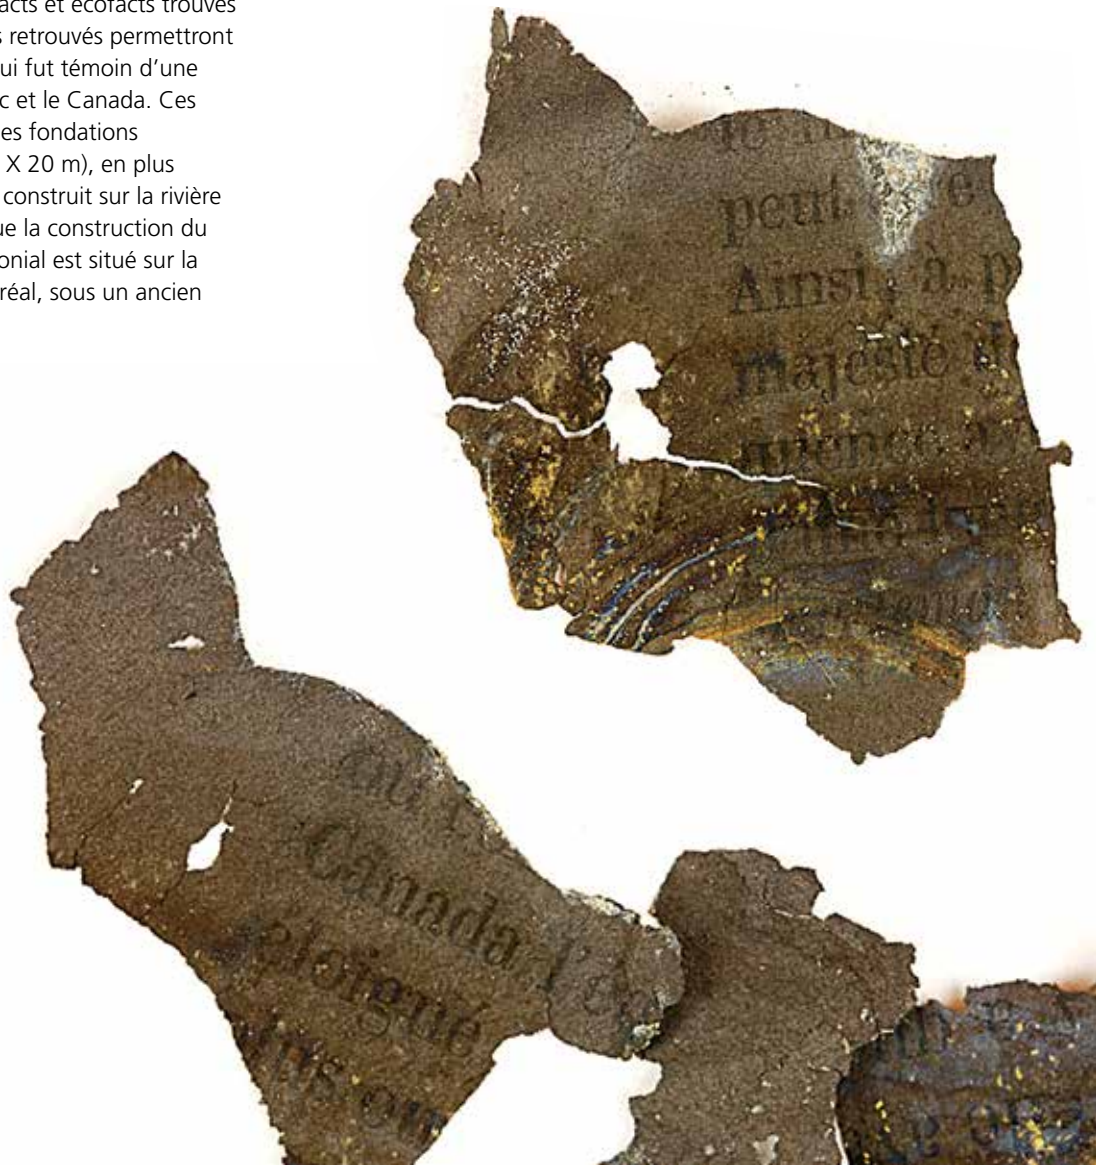 acts et écofacts trouvés
s retrouvés permettront
ui fut témoin d’une
c et le Canada. Ces
es fondations
X 20 m), en plus
construit sur la rivière
ue la construction du
onial est situé sur la
réal, sous un ancien
peut
Ainsi, à p
majesté d
quence a
au
Canada
éloigué